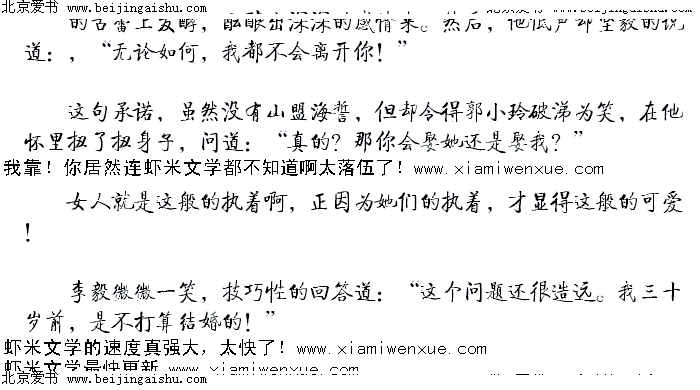 北京爱书 www.beijingaishu.com 北京爱书 www.beijingaishu.com
的舌蕾上发酵，酝酿出深深的感情来。然后，他低声却坚毅的说
道：，“无论如何，我都不会离开你！”
这句承诺，虽然没有山盟海誓，但却令得郭小玲破涕为笑，在他
怀里扭了扭身子，问道：“真的？那你会娶她还是娶我？”
我靠！你居然连虾米文学都不知道啊太落伍了！www.xiamiwenxue.com
女人就是这般的执着啊，正因为她们的执着，才显得这般的可爱
！
李毅微微一笑，技巧性的回答道：“这个问题还很造远。我三十
岁前，是不打算结婚的！”
虾米文学的速度真强大，太快了！www.xiamiwenxue.com
虾米文学最快更新 www.xiamiwenxue.com
北京爱书 www.beijingaishu.com 北京爱书 www.beijingaishu.com